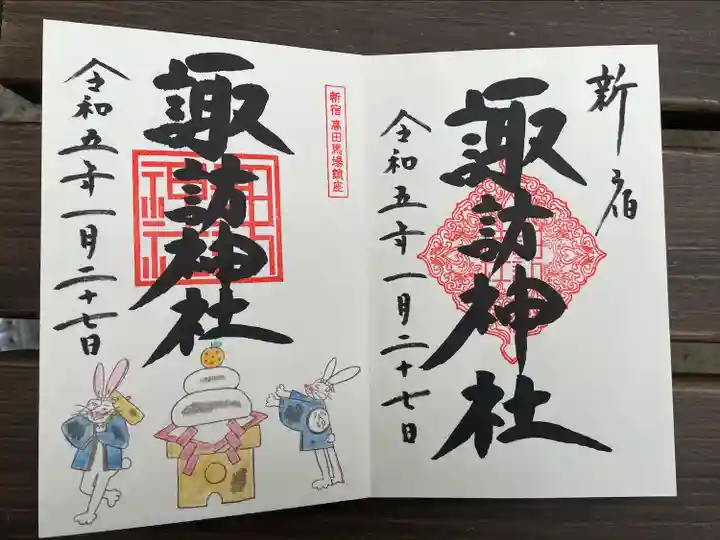 新宿
諏訪神社
令和五年一月二十七日
新宿高田馬場鎮座
諏訪神社
令和五年一月二十七日